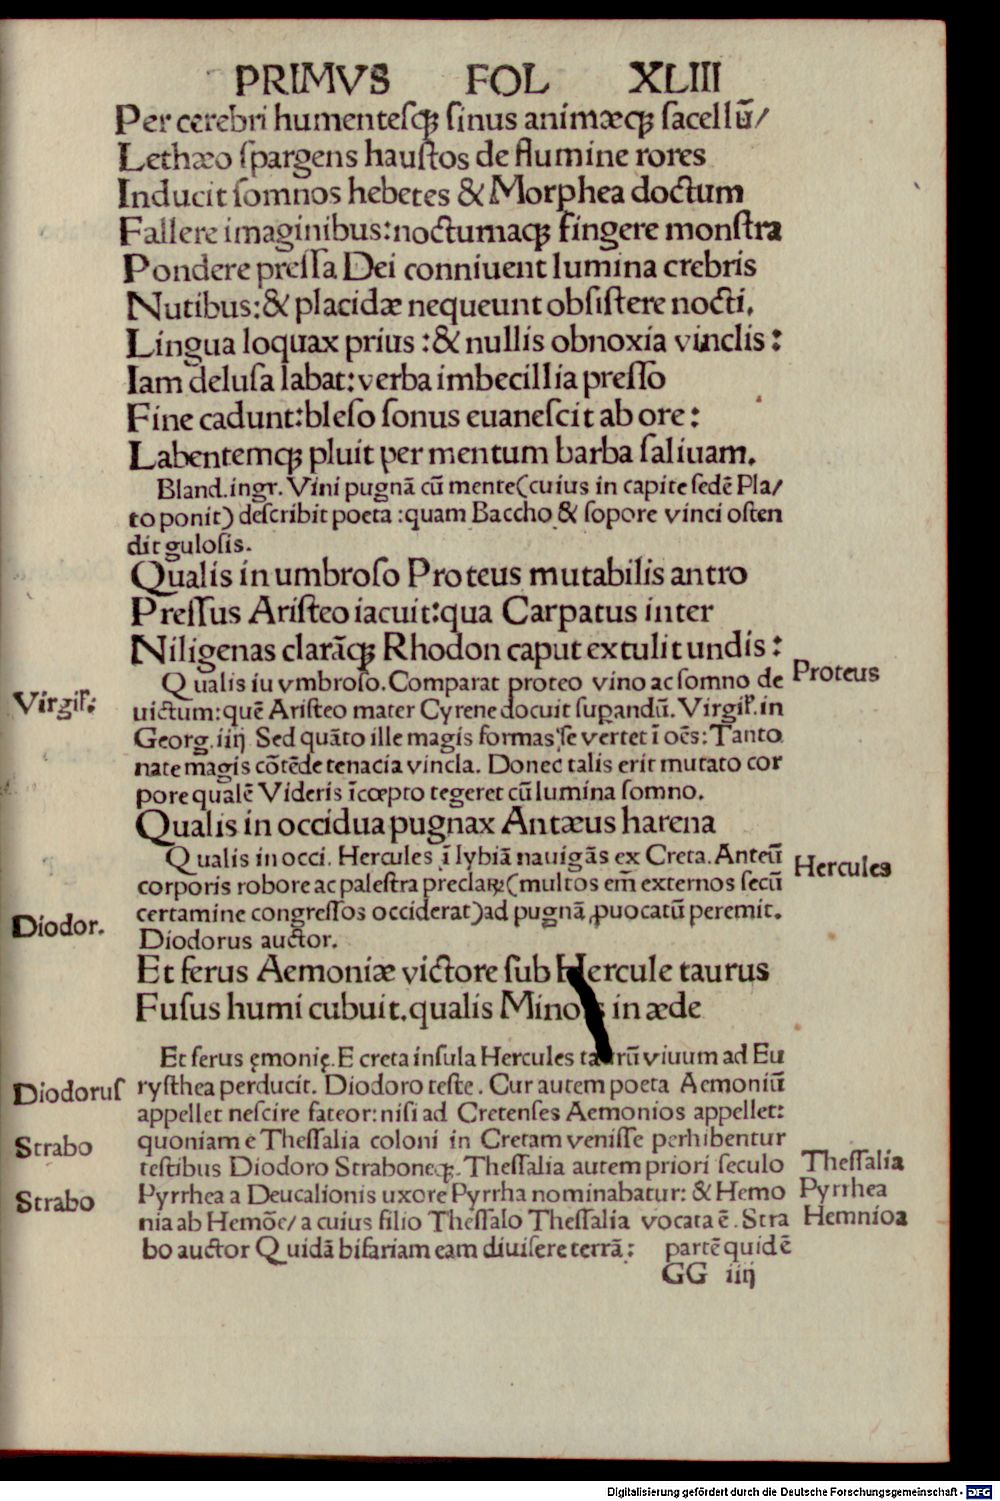 PRIMVS FOL XLIII
Per cerebri humenteſqꝫ ſinus animæcqꝫ ſacellū/
Lethæo ſpargens hauſtos de flumine rores
Inducit ſomnos hebetes & Morphea doctum
Fallere imaginibus:noctumaqꝫ fingere monſtra
Pondere preſſa Dei conniuent lumina crebris
Nutibus:& placidæ nequeunt obſiſtere nocti.
Lingua loquax prius :& nullis obnoxia vinclis :
Iam deluſa labat:verba imbecillia preſſo
Fine cadunt:bleſo ſonus euaneſcit ab ore :
Labentemqꝫ pluit per mentum barba ſaliuam.
Bland.ingr. Vini pugnā cū mente(cuius in capite ſedē Pla/
to ponit) deſcribit poeta :quam Baccho & ſopore vinci oſten
dit guloſis.
Qualis in umbroſo Proteus mutabilis antro
Preſſus Ariſteo iacuit:qua Carpatus inter
Niligenas clarāqꝫ Rhodon caput extulit undis :
Proteus
Qualis iu vmbroſo.Comparat proteo vino ac ſomno de
Virgiľ.
uictum:quē Ariſteo mater Cyrene docuit ſuꝑandū. Virgiľ.in
Georg.iiij Sed quāto ille magis formas ſe vertet ī oēs:Tanto
nate magis cōtēde tenacia vincla. Donec talis erit mutato cor
pore qualē Videris īcœpto tegeret cū lumina ſomno.
Qualis in occidua pugnax Antæus harena
Qualis in occi. Hercules ī lybiā nauigās ex Creta.Anteū
Hercules
corporis robore ac paleſtra preclaꝝ(multos em̄ externos ſecū
certamine congreſſos occiderat)ad pugnā ꝓuocatū peremit.
Diodor.
Diodorus auctor.
Et ferus Aemoniæ victore ſub Hercule taurus
Fuſus humi cubuit.qualis Minois in æde
Et ferus ęmonię.E creta inſula Hercules taurū viuum ad Eu
Diodoruſ
ryſthea perducit. Diodoro teſte. Cur autem poeta Aemoniū
appellet neſcire fateor:niſi ad Cretenſes Aemonios appellet:
Strabo
quoniam e Theſſalia coloni in Cretam veniſſe perhibentur
teſtibus Diodoro Straboneqꝫ.Theſſalia autem priori ſeculo
Theſſalia
Strabo
Pyrrhea a Deucalionis uxore Pyrrha nominabatur: & Hemo
Pyrrhea
nia ab Hemōe/a cuius filio Theſſalo Theſſalia vocata ē.Stra
Hemnioa
bo auctor Quidā bifariam eam diuiſere terrā: partē quidē
GG iiij
Digitalisierung gefördert durch die Deutsche Forschungsgemeinschaft - DFG